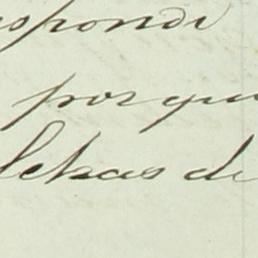 spondi
por qu
letras de